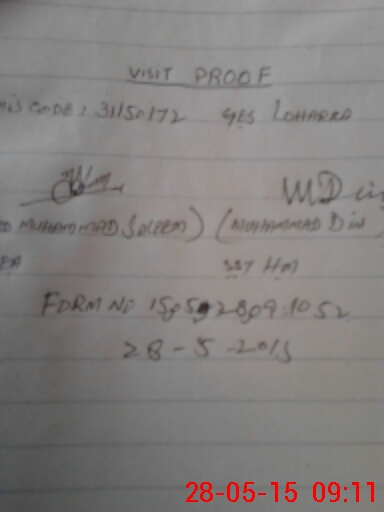 VISIT PROOF
MIS CODE: 31150172 GES LOHARKA
MUHAMMAD SALEEM) (MUHAMMAD DIN)
SST HM
FORM NO
28-5-2015
28-05-15 09:11